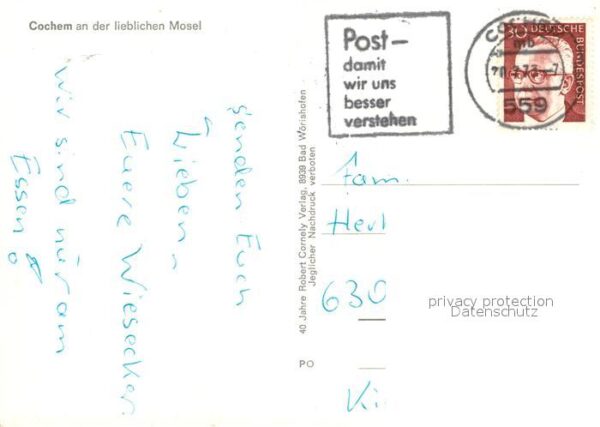 Cochem an der lieblichen Mosel
Post-
damit
wir uns
besser
verstehen
COCHEM
mb
559
30
DEUTSCHE
BUNDESPOST
senden Euch
Lieben
Euere Wiesecker
wir sind nur am
Essen!
40 Jahre Robert Cornely Verlag, 8939 Bad Wörishofen
Jeglicher Nachdruck verboten
PO
Fam.
630
privacy protection
Datenschutz